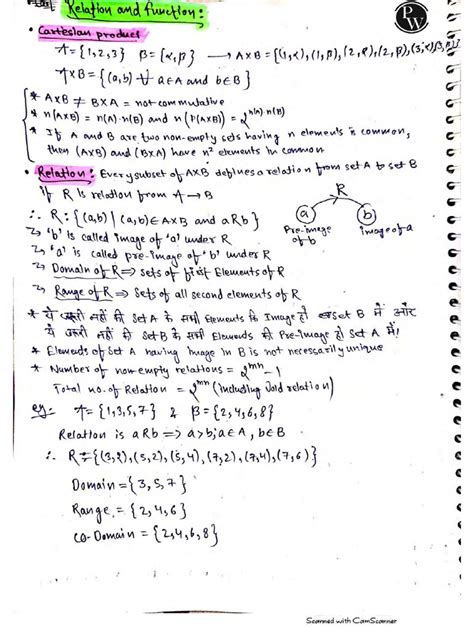 Relation and function:
PW
• Cartesian product
A = {1,2,3} B = {α,β} → A×B = {(1,α),(1,β),(2,α),(2,β),(3,α)(3,β)}
A×B = {(a,b) ∀ a∈A and b∈B}
* A×B ≠ B×A = not commutative
* n(A×B) = n(A)·n(B) and n(P(A×B)) = 2^n(A)·n(B)
* If A and B are two non-empty sets having n elements is common,
then (A×B) and (B×A) have n² elements in common
• Relation: Every subset of A×B defines a relation from set A to set B
if R is relation from A → B
R
∴ R: {(a,b) | (a,b)∈A×B and aRb}
a b
'b' is called image of 'a' under R
Pre-image of b
image of a
'a' is called pre-image of 'b' under R
Domain of R ⇒ Sets of first Elements of R
Range of R ⇒ Sets of all second elements of R
* ये जरूरी नहीं की Set A के सभी Elements की Image हो Set B में और
ये जरूरी नहीं की Set B के सभी Elements की Pre-image हो Set A में!
* Elements of Set A having image in B is not necessarily unique
* Number of non-empty relations = 2^mn - 1
Total no. of Relation = 2^mn (including Void relation)
eg:- A = {1,3,5,7} & B = {2,4,6,8}
Relation is aRb ⇒ a>b; a∈A, b∈B
∴ R = {(3,2),(5,2),(5,4),(7,2),(7,4),(7,6)}
Domain = {3,5,7}
Range = {2,4,6}
Co-Domain = {2,4,6,8}
Scanned with CamScanner